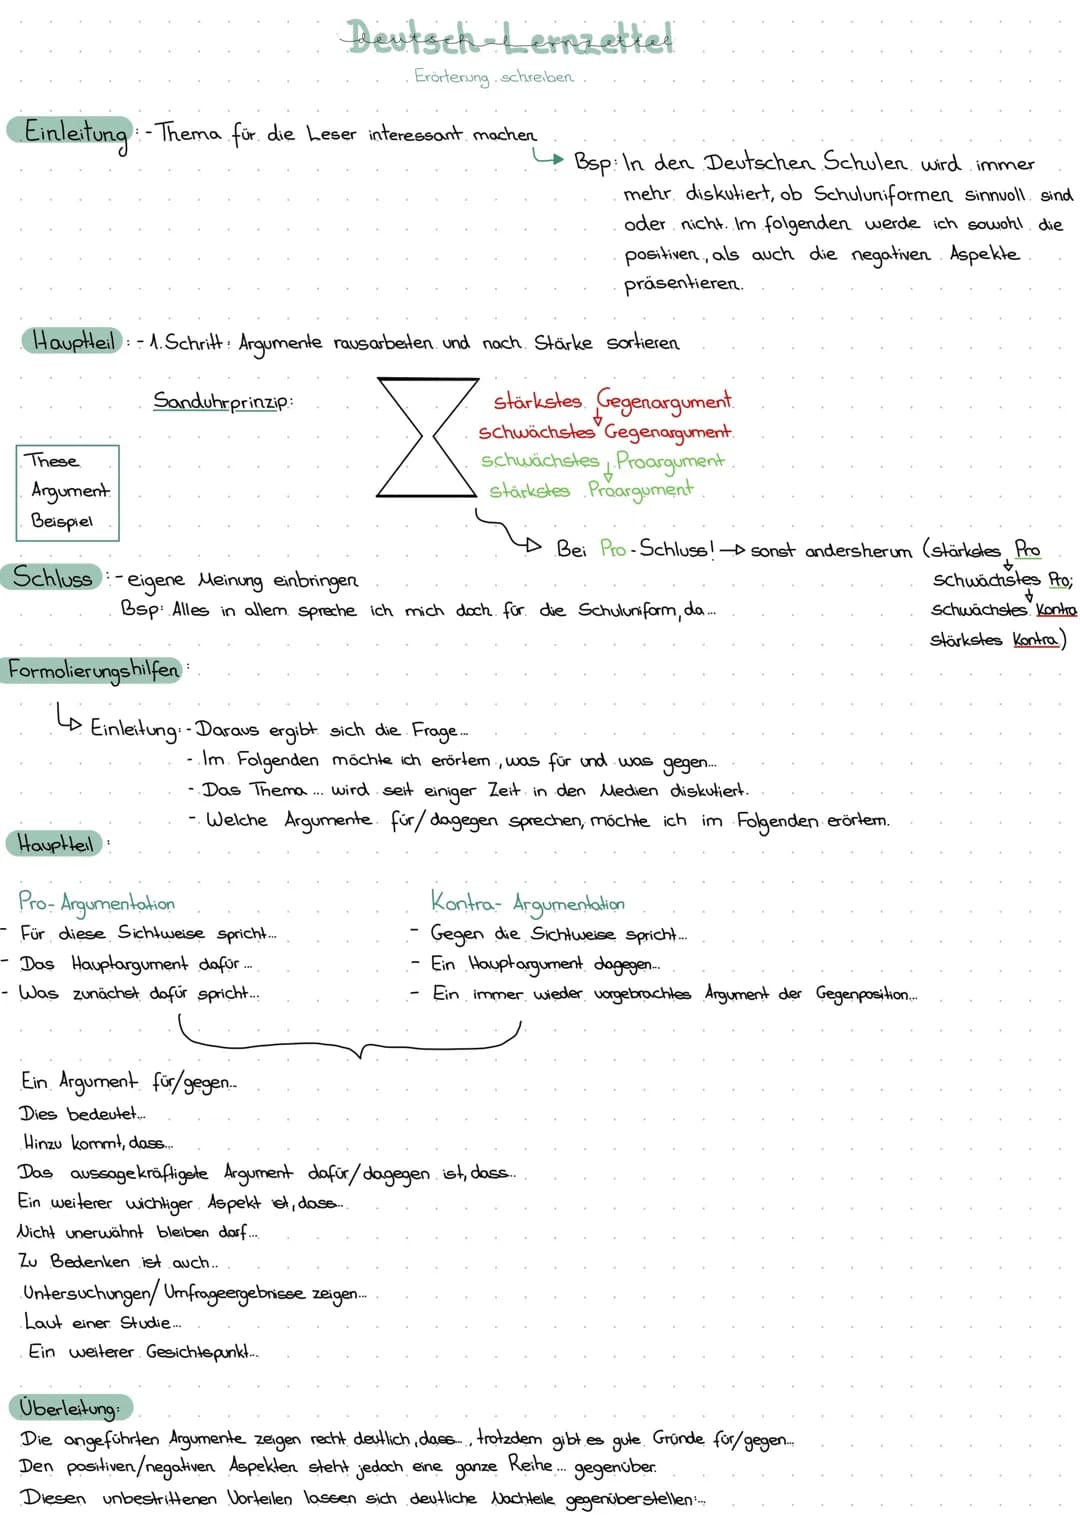 Deutsch-Lernzettel
Erörterung schreiben
Einleitung: - Thema für die Leser interessant machen
Bsp: In den Deutschen Schulen wird immer
mehr diskutiert, ob Schuluniformen sinnvoll sind
oder nicht. Im folgenden werde ich sowohl die
positiven, als auch die negativen Aspekte
präsentieren.
Hauptteil: - 1. Schritt: Argumente rausarbeiten und nach Stärke sortieren
Sanduhrprinzip:
stärkstes Gegenargument
schwächstes Gegenargument
schwächstes Proargument
stärkstes Proargument
These
Argument
Beispiel
Bei Pro-Schluss! → sonst andersherum (stärkstes Pro
schwächstes Pro;
schwächstes Kontra
stärkstes Kontra)
Schluss: - eigene Meinung einbringen
Bsp: Alles in allem spreche ich mich doch für die Schuluniform, da...
Formolierungshilfen:
Einleitung: - Daraus ergibt sich die Frage...
- Im Folgenden möchte ich erörtern, was für und was gegen...
- Das Thema ... wird seit einiger Zeit in den Medien diskutiert.
- Welche Argumente für/dagegen sprechen, möchte ich im Folgenden erörtern.
Hauptteil:
Pro-Argumentation
- Für diese Sichtweise spricht...
- Das Hauptargument dafür...
- Was zunächst dafür spricht...
Kontra-Argumentation
- Gegen die Sichtweise spricht...
- Ein Hauptargument dagegen...
- Ein immer wieder vorgebrachtes Argument der Gegenposition...
Ein Argument für/gegen...
Dies bedeutet...
Hinzu kommt, dass...
Das aussagekräftigste Argument dafür/dagegen ist, dass...
Ein weiterer wichtiger Aspekt ist, dass...
Nicht unerwähnt bleiben darf...
Zu Bedenken ist auch...
Untersuchungen/Umfrageergebnisse zeigen...
Laut einer Studie...
Ein weiterer Gesichtspunkt...
Überleitung:
Die angeführten Argumente zeigen recht deutlich, dass..., trotzdem gibt es gute Gründe für/gegen...
Den positiven/negativen Aspekten steht jedoch eine ganze Reihe... gegenüber.
Diesen unbestrittenen Vorteilen lassen sich deutliche Nachteile gegenüberstellen:...